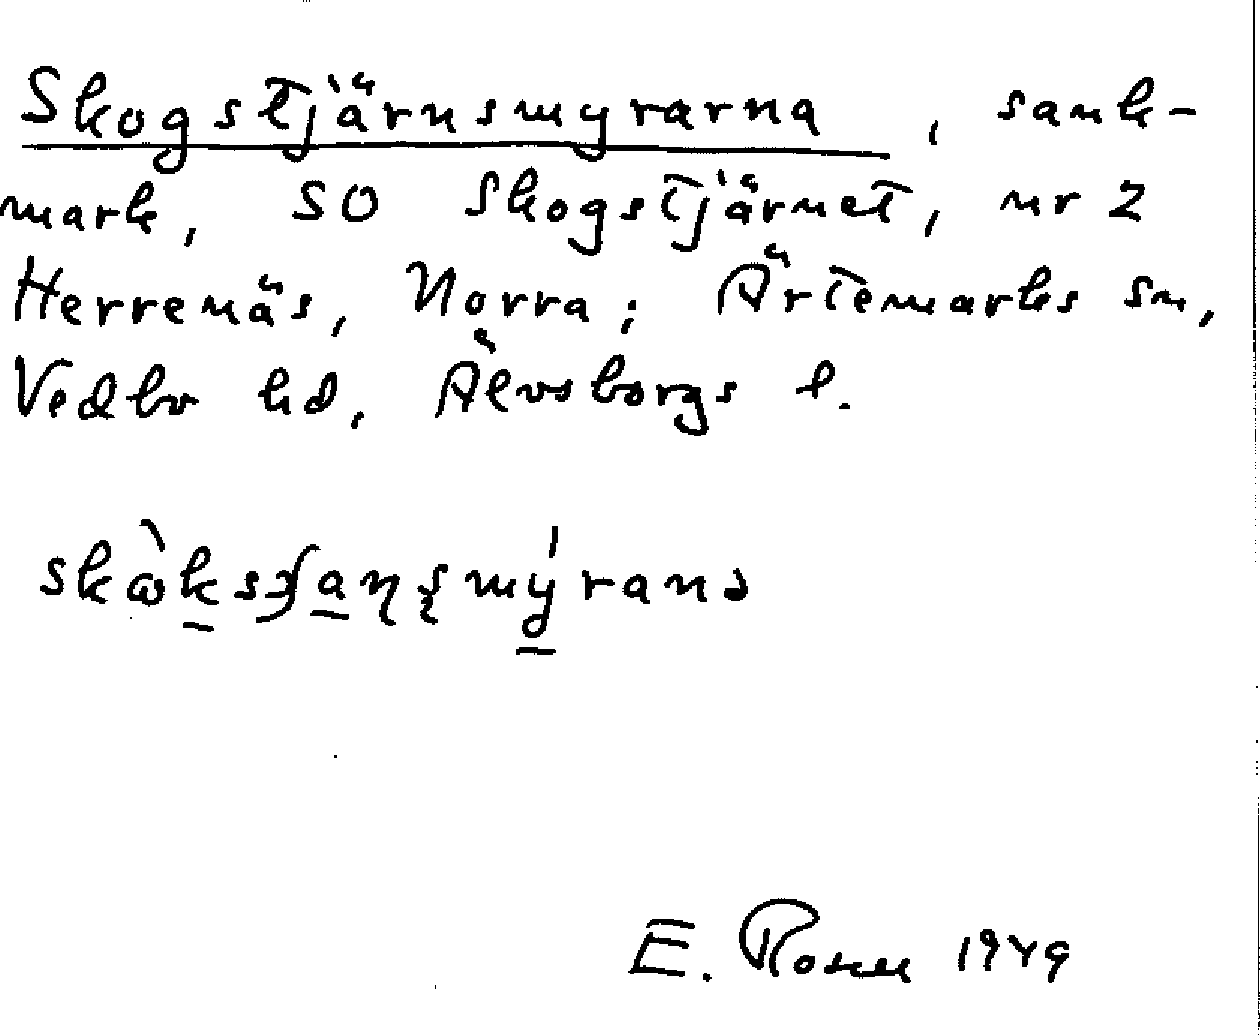 Skogstjärnsmyrarna, sank-
mark, SO Skogstjärnet, nr 2
Herrenäs, Norra; Ärtemarks sn,
Vedbo hd, Älvsborgs l.
E. Rosen 1949